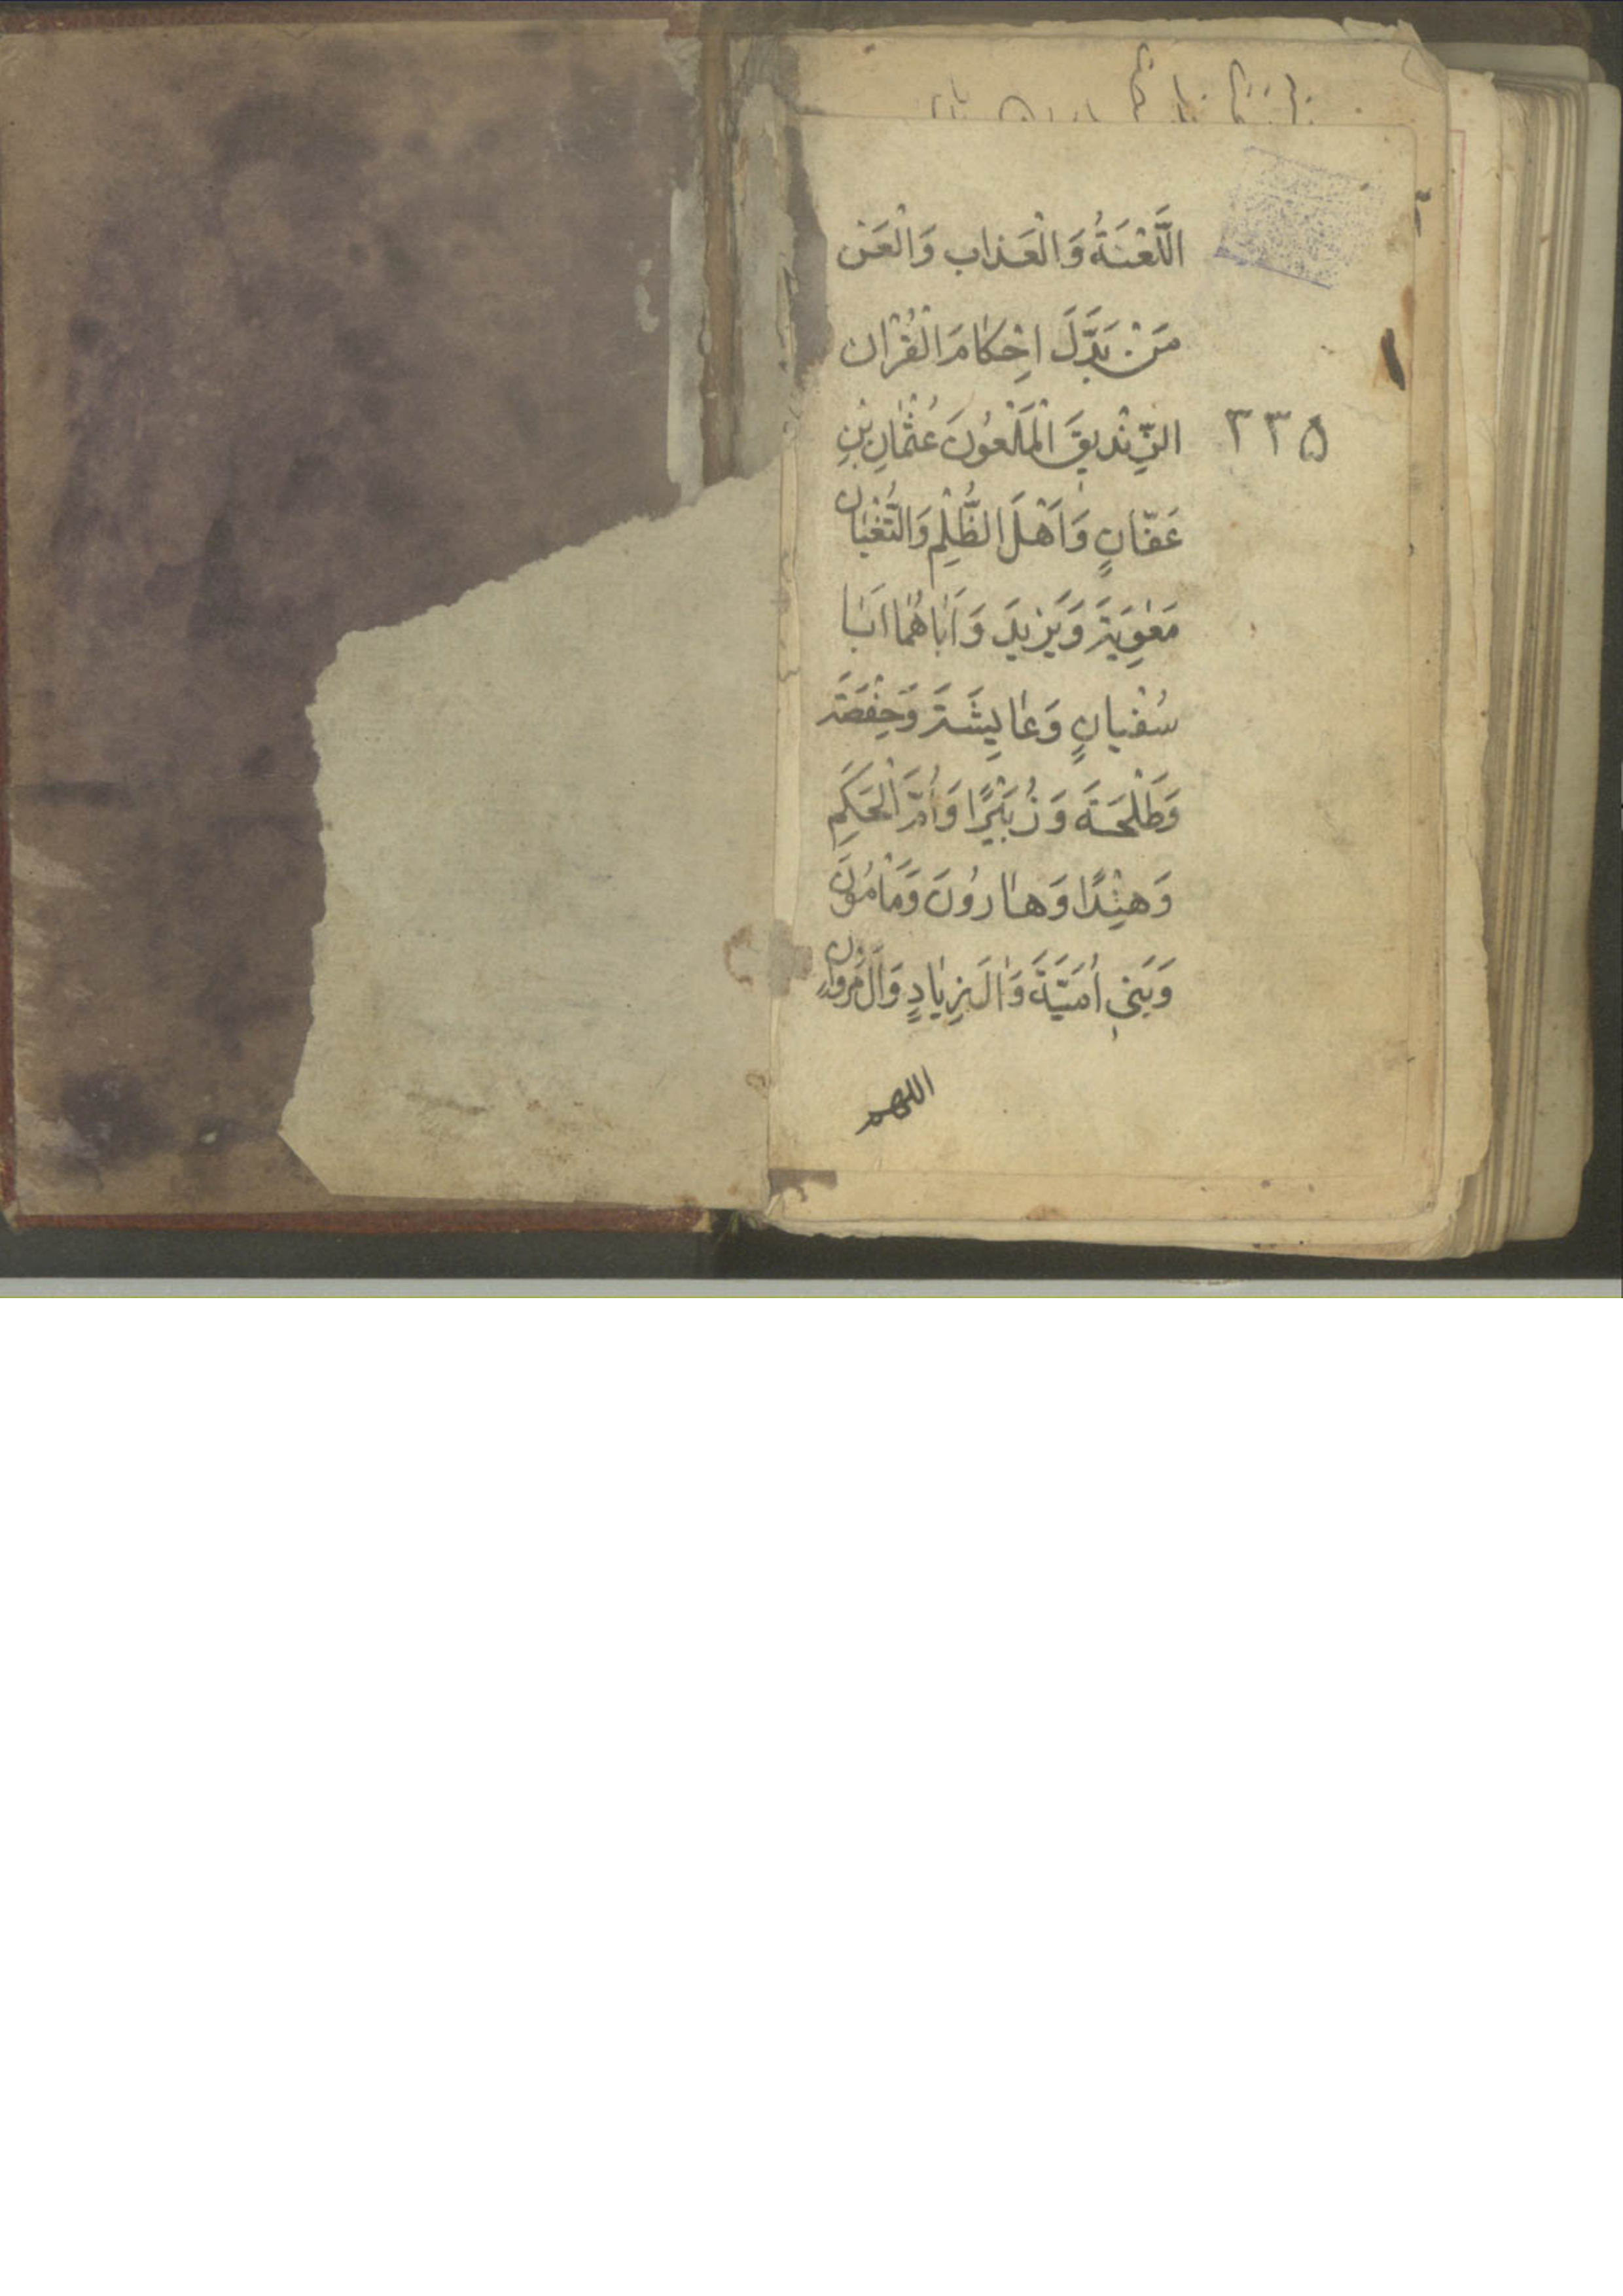 اللَّعْنَةُ وَالْعَذابِ وَالْعَنْ
مَنْ بَدَّلَ اَحْكامَ الْقُرْان
الزِّنْديقَ الْمَلْعُونَ عُثْمانِ بْنِ
٣٣۵
عَفّانٍ وَاَهْلَ الظُّلْمِ وَالتُّغْيان
مَعٰوِيَةَ وَيَزيدَ وَاَباهُما اَبا
سُفْيانٍ وَعايِشَةَ وَحِفْصَةَ
وَطَلْحَةَ وَزُبَيْرًا وَاُمَّ الْحَكَمِ
وَهِنْدًا وَهارُونَ وَمَأْمُونَ
وَبَنى اُمَيَّةَ وَالَ زِيادٍ وَالَ مَرْوان
اللهم